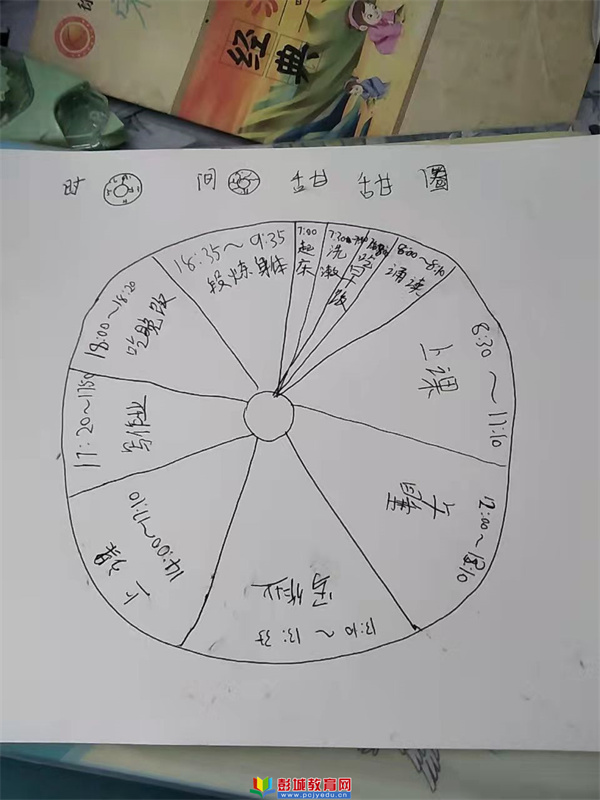 经典
时 间 甜 甜 圈
7:00
起床
洗漱
吃早饭
8:00～8:10
诵读
8:30～11:10
上课
12:00～13:10
午睡
13:10～13:35
写作业
14:00～17:10
上课
17:20～17:50
写作业
18:00～18:20
吃晚饭
18:35～9:35
锻炼身体
彭城教育网
www.pcjyedu.cn